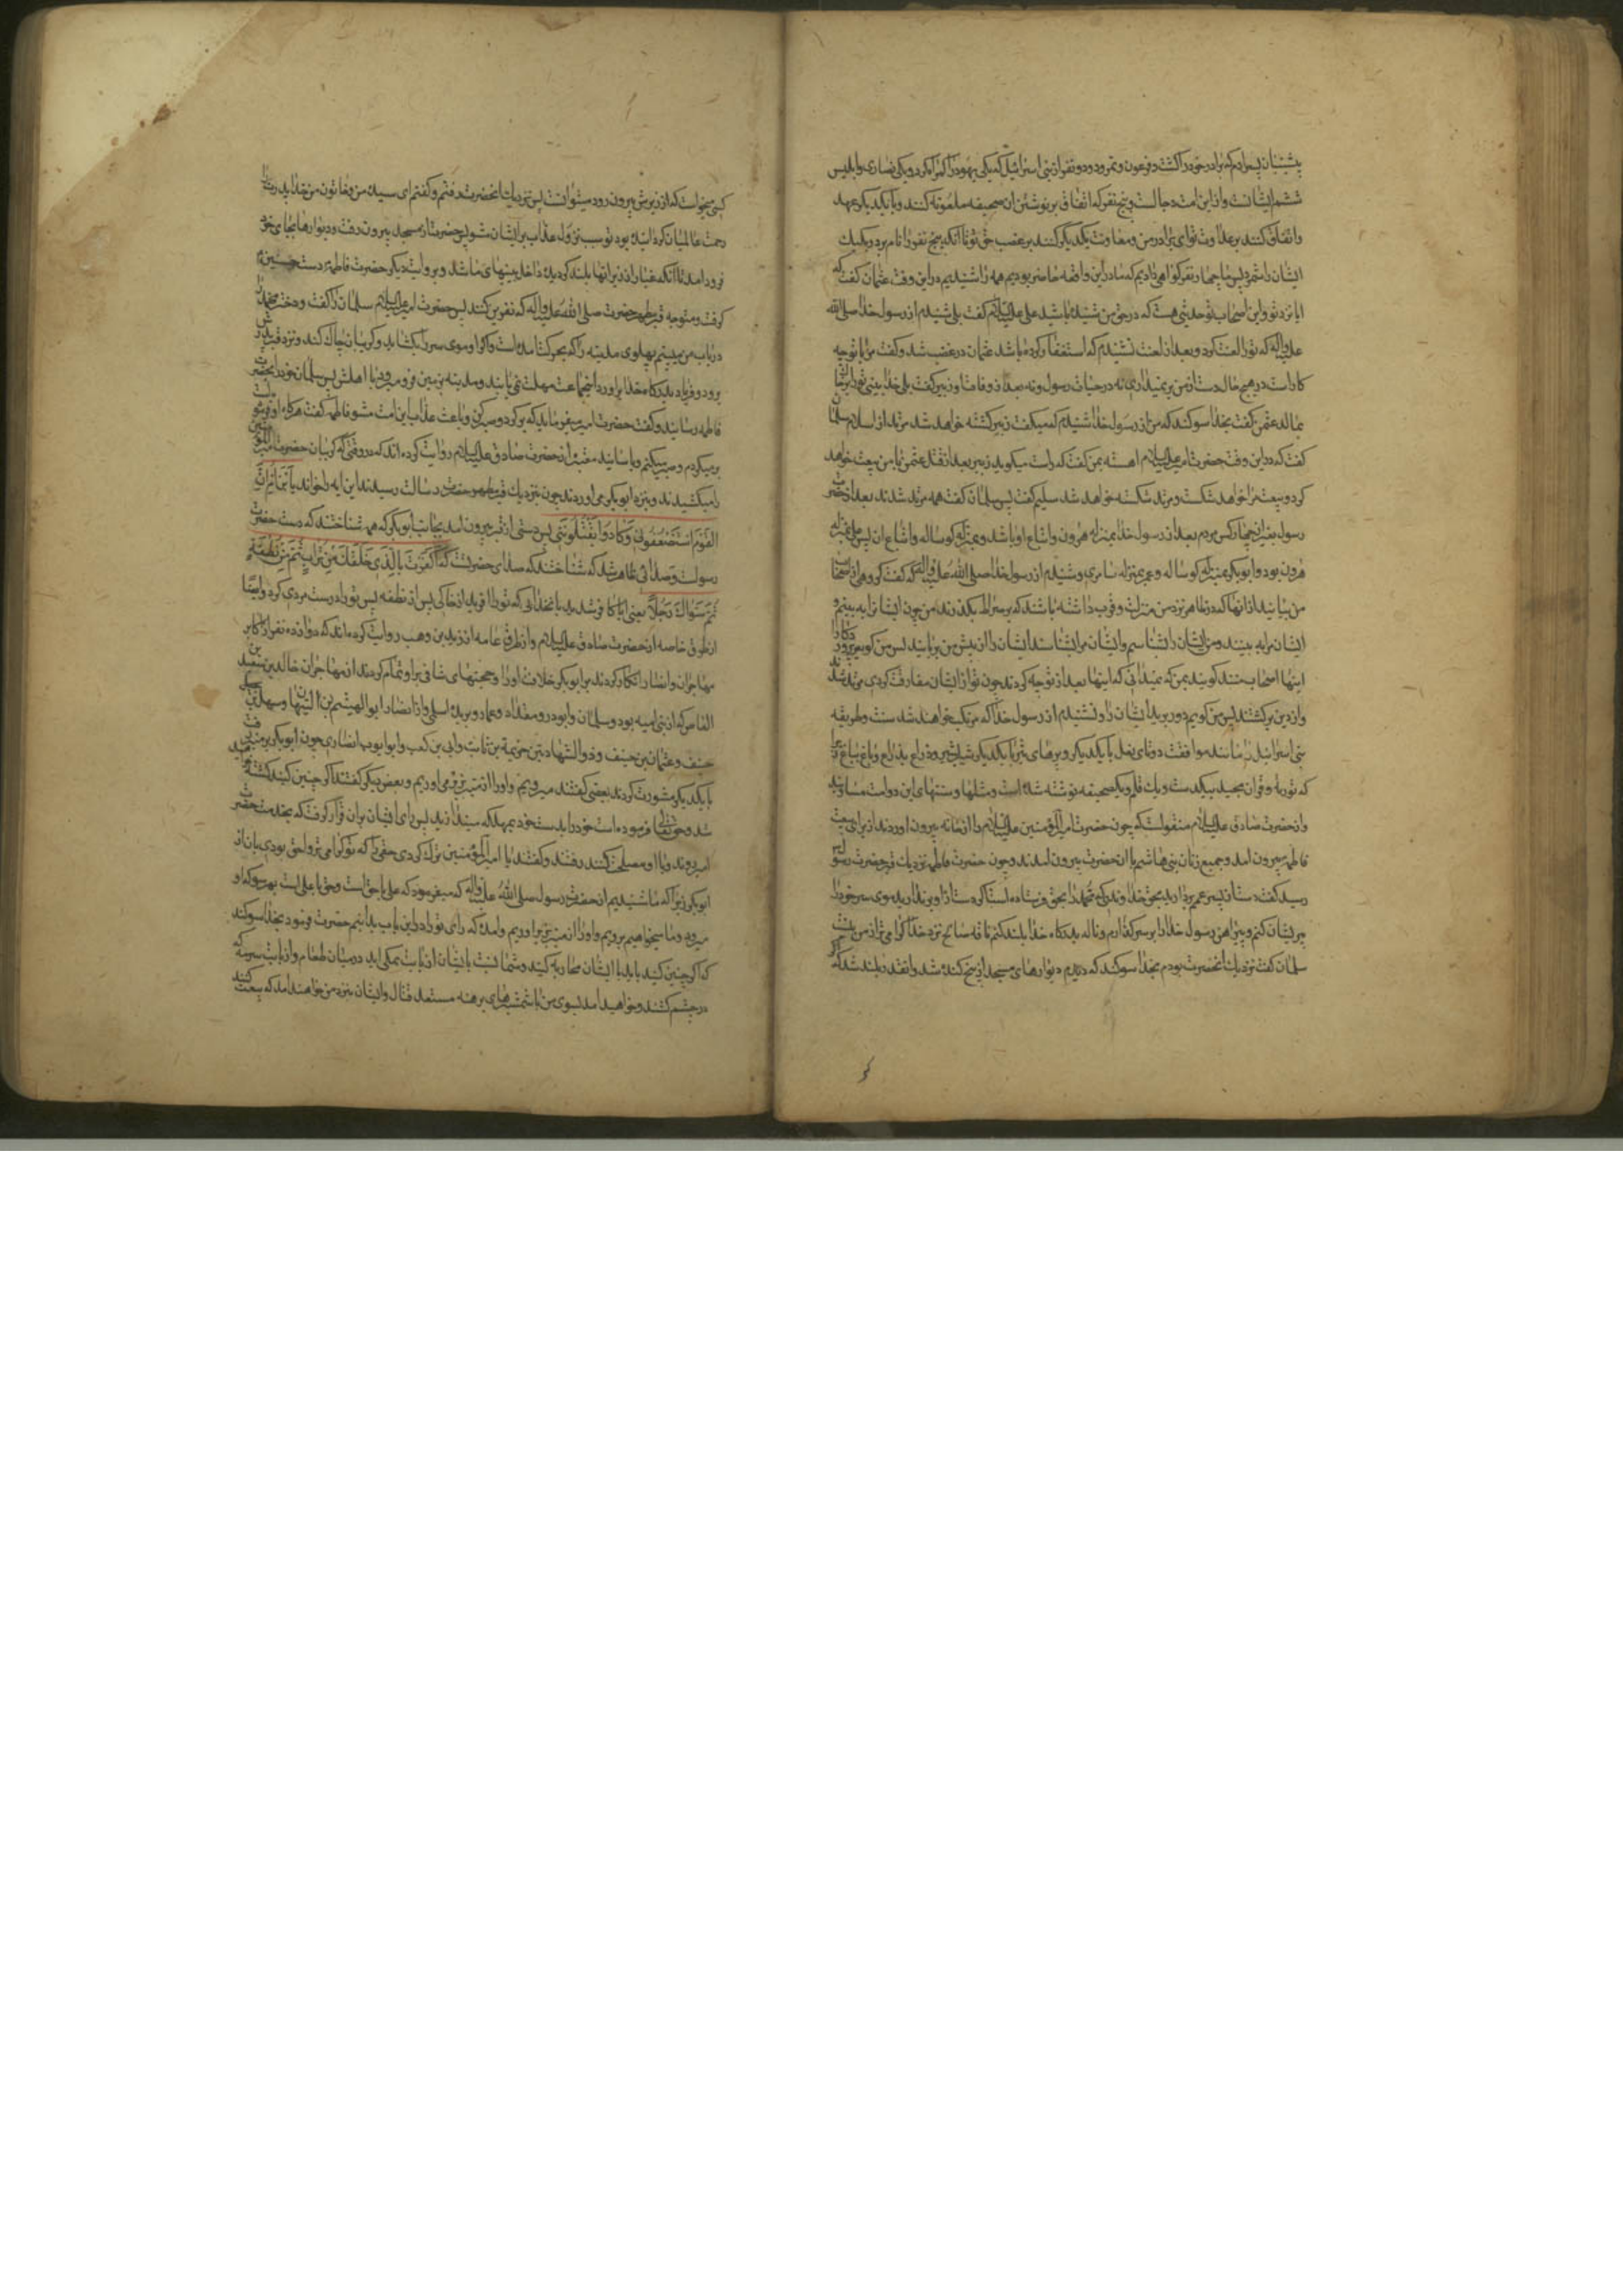 پیشینیان پسر آدم که برادر خود را کشت و فرعون و نمرود و دو نفر از بنی اسرائیل که یکی یهود را گمراه کرد و یکی نصاری و ابلیس
ششم ایشانست و از این امت دجالست و پنج نفر که اتفاق بر نوشتن آن صحیفه ملعونه کنند و با یکدیگر عهد
و اتفاق کنند بر عداوت تو ای برادر من و معاونت یکدیگر کنند بر غصب حق تو تا آنکه پنج نفر را نام برد و یک یک
ایشان را شمرد پس ما چهار نفر گواهی دادیم که ما در این واقعه حاضر بودیم همه را شنیدیم در این وقت عثمان گفت که
ایا نزد تو و این اصحاب تو حدیثی هست که در حق من شنیده باشید علی علیه السلام گفت بلی شنیدم از رسول خدا صلی الله
علیه و آله که تو را لعنت کرد و بعد از لعنت نشنیدم که استغفار کرده باشد عثمان در غضب شد و گفت مرا با تو چه
کار است در هیچ حال دست از من بر نمیداری نه در حیات رسول و نه بعد از وفات او زبیر گفت بلی خدا بینی تو را بر خاک
بمالد عثمن گفت بخدا سوگند که من از رسول خدا شنیدم که میگفت زبیر کشته خواهد شد مرتد از اسلام سلمان
گفت که در این وقت حضرت امیر علیه السلام آهسته بمن گفت که راست میگوید زبیر بعد از قتل عثمن با من بیعت خواهد
کرد و بیعت مرا خواهد شکست و مرتد کشته خواهد شد سلیم گفت پس سلمان گفت همه مرتد شدند بعد از حضرت
رسول بغیر از چهار کس مردم بعد از رسول خدا بمنزله هرون و اتباع او باشد و بمنزله کوساله و اتباع آن پس علی بمنزله
هرون بود و ابوبکر بمنزله کوساله و عمر بمنزله سامری و شنیدم از رسول خدا صلی الله علیه و آله که گفت گروهی از اصحاب
من بیایند از آنها که در ظاهر نزد من منزلت و قرب داشته باشند که بر صراط بگذرند من چون ایشان را به بینم و
ایشان مرا به بینند و من ایشان را شناسم و ایشان مرا شناسند ایشان را از پیش من بربایند پس من گویم پروردگارا
اینها اصحاب منند گویند بمن که نمیدانی که اینها بعد از تو چه کردند چون تو از ایشان مفارقت کردی مرتد شدند
و از دین برگشتند پس من گویم دور برید ایشان را و شنیدم از رسول خدا که مرتکب خواهند شد سنت و طریقه
بنی اسرائیل را مانند موافقت دو تای نعل با یکدیگر و پرهای تیر با یکدیگر شبر بشبر و ذراع بذراع و باع بباع زیرا
که توریه و قرآن مجید بیکدست و یک قلم و یک صحیفه نوشته شده است و مثلها و سنتهای این دو امت مساویند
و از حضرت صادق علیه السلام منقولست که چون حضرت امیرالمؤمنین علیه السلام را از خانه بیرون آوردند از برای بیعت
فاطمه بیرون آمد و جمیع زنان بنی هاشم با آن حضرت بیرون آمدند و چون حضرت فاطمه نزدیک قبر حضرت رسول
رسید گفت دست از پسر عمم بردارید بحق خداوندی که محمد را بحق فرستاده است اگر دست از او برندارید موی سر خود را
پریشان کنم و پیراهن رسول خدا را بر سر گذارم و ناله بدرگاه خدا بلند کنم ناقه صالح نزد خدا گرامی تر از من نیست
سلمان گفت نزدیک آنحضرت بودم بخدا سوگند که دیدم دیوارهای مسجد از بیخ کنده شد و آنقدر بلند شد که اگر
کسی میخواست که از زیرش بیرون رود میتوانست پس نزدیک آنحضرت رفتم و گفتم ای سیده من و خاتون من خدا پدرت را
رحمت عالمیان گردانیده بود تو سبب نزول عذاب بر ایشان مشو پس حضرت از مسجد بیرون رفت و دیوارها بجای خود
فرود آمد تا آنکه غبار از زیر آنها بلند گردیده داخل بینیهای ما شد و بروایت دیگر حضرت فاطمه دست حسنین
گرفت و متوجه قبر مطهر حضرت صلی الله علیه و آله که نفرین کند پس حضرت امیر علیه السلام سلمان را گفت و دختر محمد را
دریاب من میبینم پهلوی مدینه را که بحرکت آمده است و اگر او موی سر را بگشاید و گریبان چاک کند و نزد قبر پدرش
برود و فریاد بدرگاه خدا برآورد این جماعت مهلت نمی یابند و مدینه بزمین فرو میرود با اهلش پس سلمان خود را بحضرت
فاطمه رسانید و گفت حضرت امیر میفرماید که برگرد و صبر کن و باعث عذاب این امت مشو فاطمه گفت هرگاه او فرموده است
برمیگردم و صبر میکنم و باسانید معتبر از حضرت صادق علیه السلام روایت کرده اند که در وقتی که گریبان حضرت امیرالمؤمنین
را میکشیدند و بنزد ابوبکر می آوردند چون نزدیک قبر مطهر حضرت رسالت رسیدند این آیه را خواند یا ابن ام ان
القوم استضعفونی و کادوا یقتلوننی پس دستی از قبر بیرون آمد بجانب ابوبکر که همه شناختند که دست حضرت
رسولست و صدائی ظاهر شد که شناختند که صدای حضرتست که اکفرت بالذی خلقک من تراب ثم من نطفة
ثم سواک رجلا یعنی ایا کافر شدی بآنخدائی که تو را آفرید از خاکی پس از نطفه پس تو را درست مردی کرد و ایضا
از طرق خاصه از حضرت صادق علیه السلام و از طرق عامه از زید بن وهب روایت کرده اند که دوازده نفر از اکابر
مهاجران و انصار انکار کردند بر ابوبکر خلافت او را و حجتهای شافی بر او تمام کردند از مهاجران خالد بن سعید بن
العاص که از بنی امیه بود و سلمان و ابوذر و مقداد و عمار و بریده اسلمی و از انصار ابو الهیثم بن التیهان و سهل بن
حنیف و عثمان بن حنیف و ذو الشهادتین خزیمة بن ثابت و ابی بن کعب و ابو ایوب انصاری چون ابوبکر بر منبر رفت
با یکدیگر مشورت کردند بعضی گفتند میرویم و او را از منبر بزیر می آوریم و بعض دیگر گفتند اگر چنین کنید کشته میشوید
و حق تعالی فرموده است خود را بدست خود بمهلکه میندازید پس رای ایشان بر آن قرار گرفت که بخدمت حضرت
امیر روند و با او مصلحت کنند رفتند و گفتند یا امیرالمؤمنین ترک کردی حقی را که تو گرامی تر و احق بودی بآن از
ابوبکر زیرا که ما شنیدیم از حضرت رسول صلی الله علیه و آله که میفرمود که علی با حق است و حق با علی است بهر سو که او
میرود و ما میخواهیم برویم و او را از منبر بزیر آوریم و آمده ایم که رای تو را در این باب بدانیم حضرت فرمود بخدا سوگند
که اگر چنین کنید باید با ایشان محاربه کنید و شما نسبت بایشان از بابت نمکی اید در میان طعام و از بابت سرمه که
در چشم کشند و خواهید آمد بسوی من با شمشیرهای برهنه مستعد قتال و ایشان بنزد من خواهند آمد که بیعت کنید